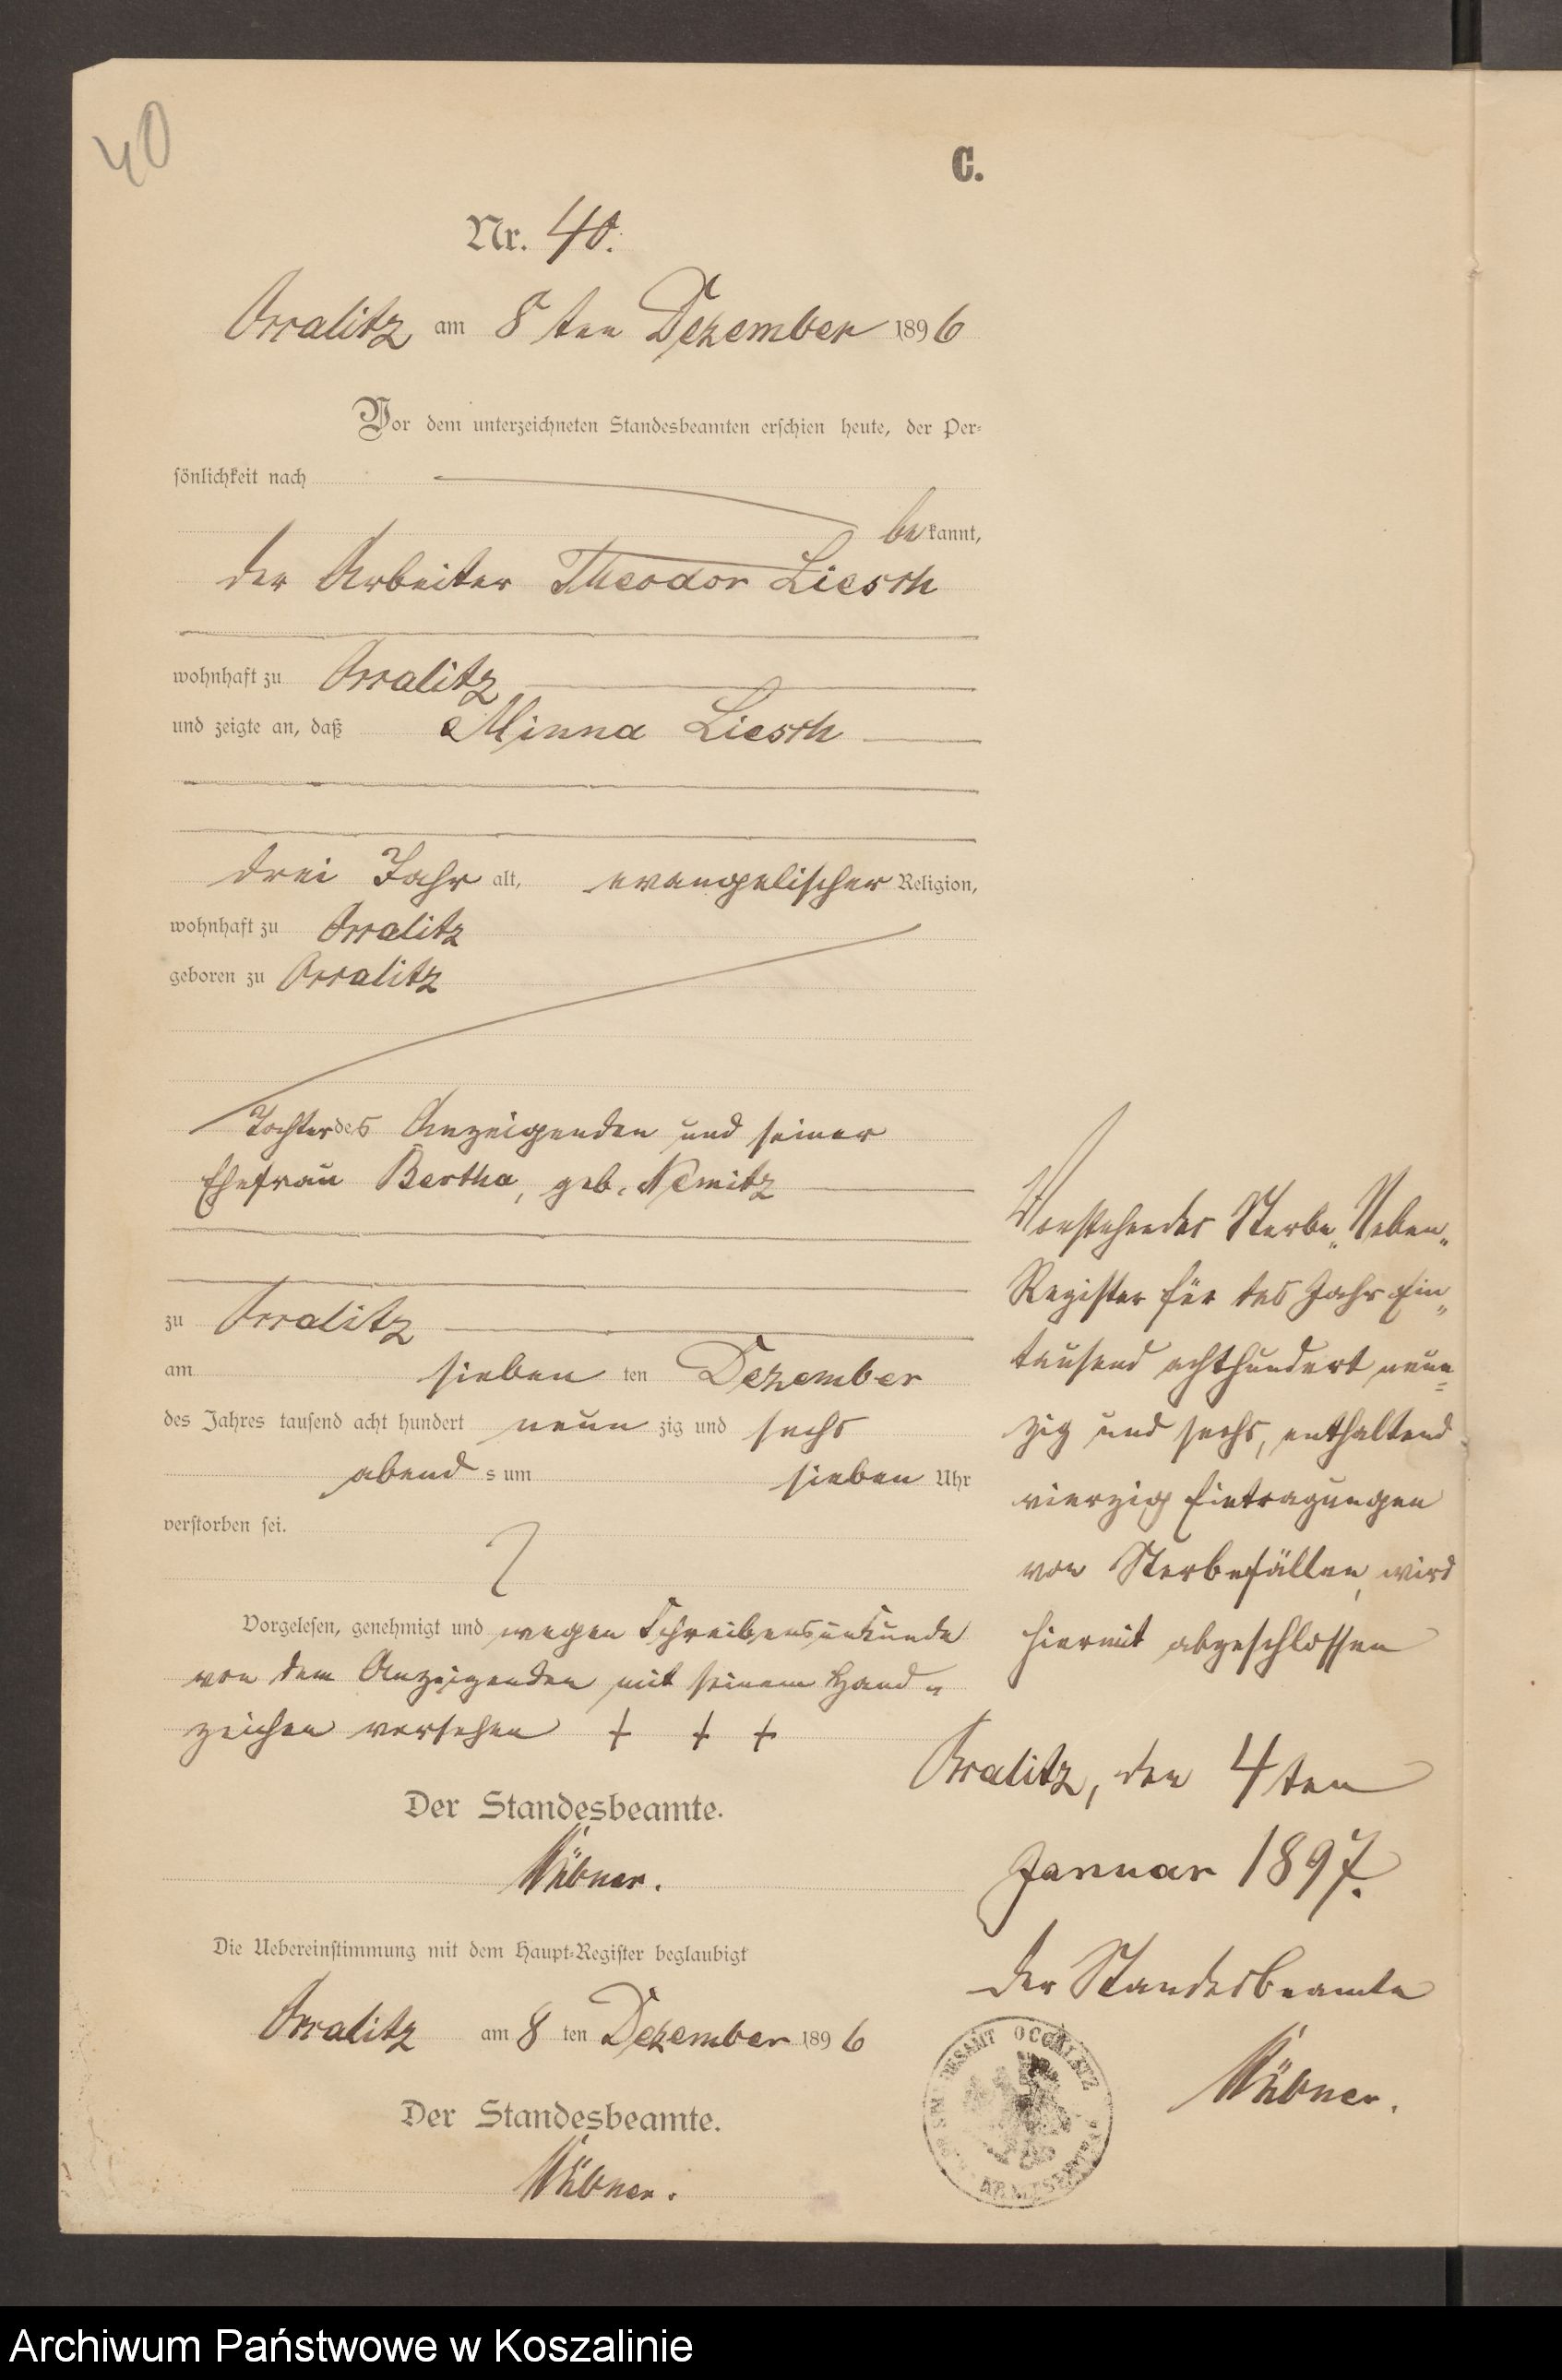 40
C.
Nr. 40.
Occalitz am 8 ten Dezember 1896
Vor dem unterzeichneten Standesbeamten erschien heute, der Per-
sönlichkeit nach
bekannt,
der Arbeiter Theodor Liesch
wohnhaft zu Occalitz
und zeigte an, daß Minna Liesch
drei Jahr alt, evangelischer Religion,
wohnhaft zu Occalitz
geboren zu Occalitz
Tochter des Anzeigenden und seiner
Ehefrau Bertha, geb. Nemitz
zu Occalitz
am sieben ten Dezember
des Jahres tausend acht hundert neun zig und sechs
abend s um sieben Uhr
verstorben sei.
Vorgelesen, genehmigt und wegen Schreibensunkunde
von dem Anzeigenden mit seinem Hand"
zeichen versehen + + +
Der Standesbeamte.
Die Uebereinstimmung mit dem Haupt-Register beglaubigt
Occalitz am 8 ten Dezember 1896
Der Standesbeamte.
Vorstehendes Sterbe" Neben"
Register für das Jahr Ein"
tausend achthundert neun=
zig und sechs, enthaltend
vierzig Eintragungen
von Sterbefällen, wird
hiermit abgeschlossen
Occalitz, den 4ten
Januar 1897.
Der Standesbeamte
STANDESAMT OCCALITZ
Archiwum Państwowe w Koszalinie